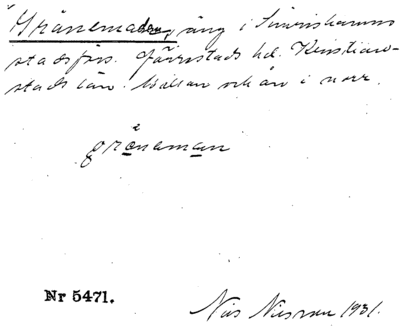 "Gränemaden, äng i Simrishamns
stadsförs. Järrestads hd. Kristian-
stads län. Mellan och ån i norr.
gränəman
Nr 5471.
Nils Nilsson 1931.